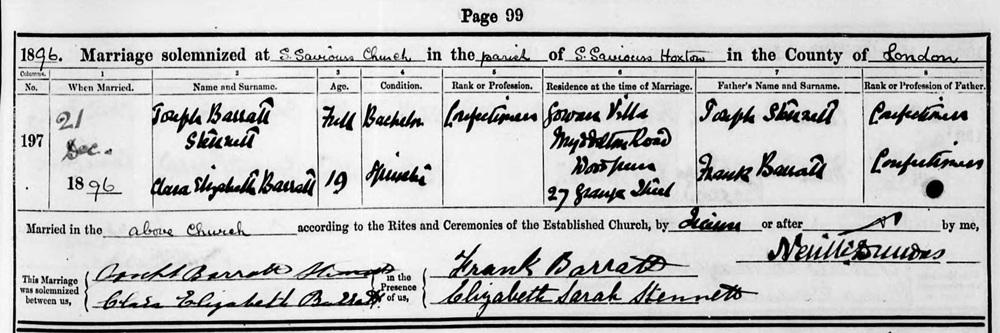 Page 99
1896. Marriage solemnized at S. Saviours Church in the parish of S. Saviours Hoxton in the County of London
Columns. 1 2 3 4 5 6 7 8
No. When Married. Name and Surname. Age. Condition. Rank or Profession. Residence at the time of Marriage. Father's Name and Surname. Rank or Profession of Father.
197 21 Dec. 1896
Joseph Barratt Stennett Full Bachelor Confectioner Gowan Villa Road Joseph Stennett Confectioner
Clara Elizabeth Barratt 19 Spinster 27 Frank Barratt Confectioner
Married in the above Church according to the Rites and Ceremonies of the Established Church, by or after by me,
This Marriage was solemnized between us, Joseph Barratt Stennett Clara Elizabeth Barratt in the Presence of us, Frank Barratt Elizabeth Sarah Stennett